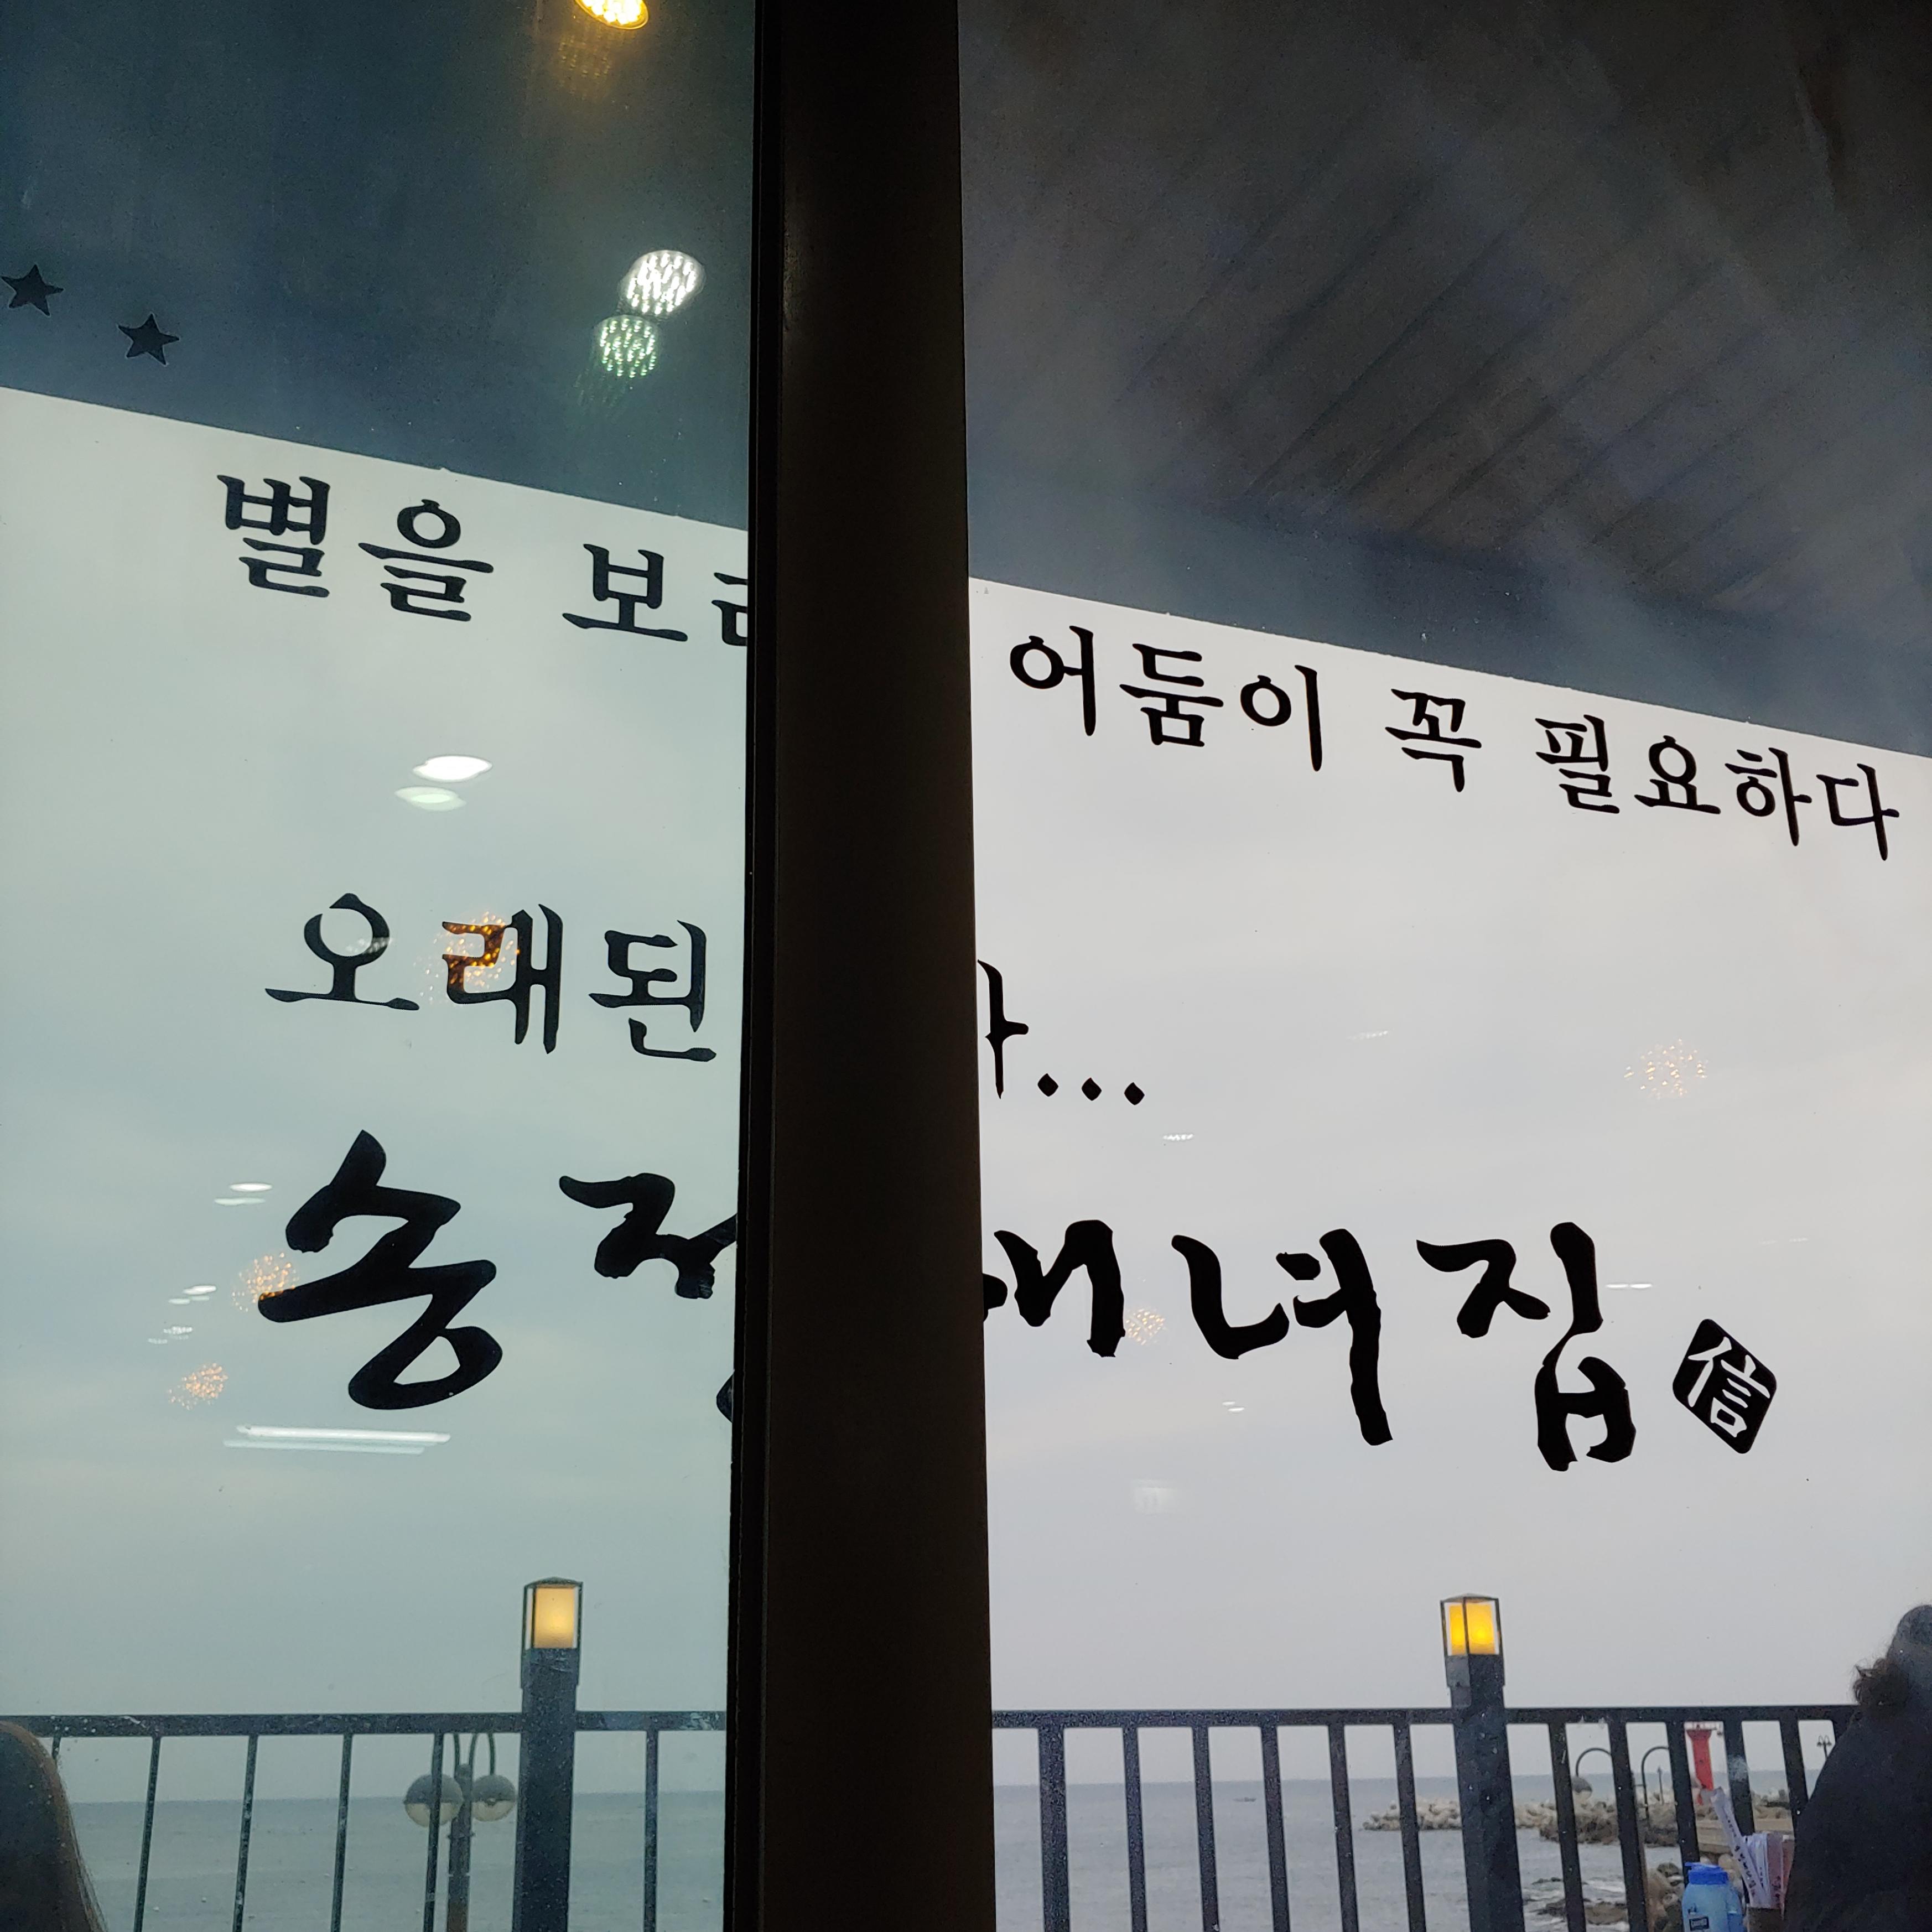 별을 보 어둠이 꼭 필요하다
오래된 ...
송정 해녀집 信